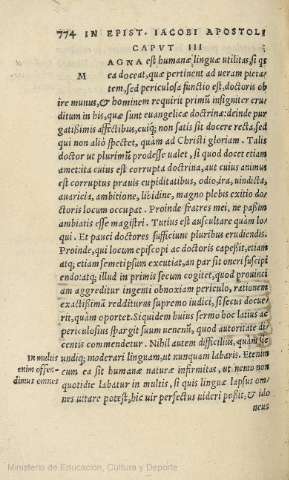 774 IN EPIST. IACOBI APOSTOLI
CAPVT III
MAGNA est humanæ linguæ utilitas, si qs
ea doceat, quæ pertinent ad ueram pieta-
tem, sed periculosa functio est, doctoris ob
ire munus, & hominem requirit primũ insigniter eru-
ditum in his, quæ sunt euangelicæ doctrinæ: deinde pur
gatißimis affectibus, cuiq; non satis sit docere recta, sed
qui non aliò spectet, quàm ad Christi gloriam. Talis
doctor ut plurimũ prodesse ualet, si quod docet etiam
amet: ita cuius est corrupta doctrina, aut cuius animus
est corruptus prauis cupiditatibus, odio, ira, uindicta,
auaricia, ambitione, libidine, magno plebis exitio do-
ctoris locum occupat. Proinde fratres mei, ne paßim
ambiatis esse magistri. Tutius est auscultare quàm lo-
qui. Et pauci doctores sufficiunt pluribus erudiendis.
Proinde, qui locum episcopi ac doctoris capeßit, etiam
atq; etiam semetipsum excutiat, an par sit oneri suscipi
endo: atq; illud in primis secum cogitet, quod prouinci
am aggreditur ingenti obnoxiam periculo, rationem
exactißimã redditurus supremo iudici, si secus docue
rit, quàm oportet. Siquidem huius sermo hoc latius ac
periculosius spargit suum uenenũ, quod autoritate di
centis commendetur. Nihil autem difficilius, quàm
In multis undiq; moderari linguam, ut nunquam labaris. Etenim
enim offen- cum ea sit humanæ naturæ infirmitas, ut nemo non
dimus omnes quotidie labatur in multis, si quis linguæ lapsus om-
nes uitare potest, hic uir perfectus uideri poßit, & ido
neus
Ministerio de Educación, Cultura y Deporte